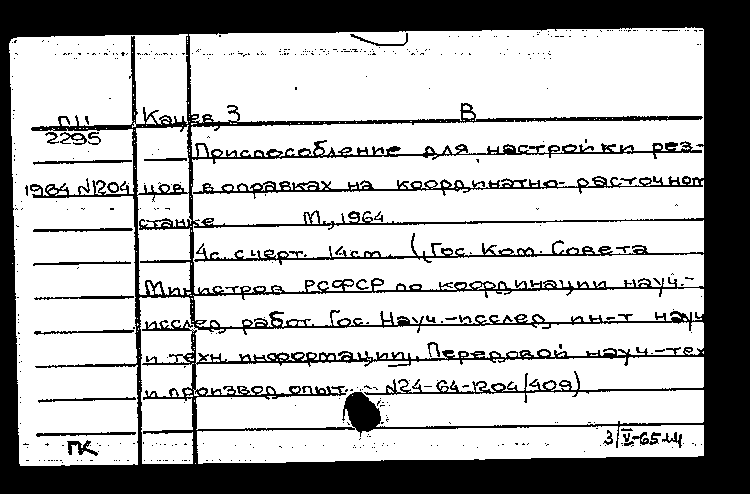 ПЦ Кацев, З В
2295
Приспособление для настройки рез-
1964 N1204 цов в оправках на координатно-расточном
станке. М., 1964.
4с. с черт. 14см. (Гос. Ком. Совета
Министров РСФСР по координации науч.-
исслед. работ. Гос. Науч.-исслед. ин-т науч
и техн. информации. Передовой науч.-тех
и производ. опыт. - N24-64-1204/409)
ПК 3/V-65